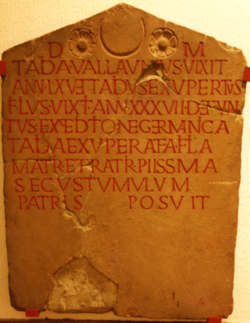 D M
TADIA VALLAVNIVS VIXIT
ANN LXV ET TADIVS EXVPERTVS
FILIVS VIXIT ANN XXXVII DEFVN
TVS EXPEDITIONE GERMANICA
TADIA EXVPERATA FILIA
MATRI ET FRATRI PIISSIMA
SECVS TVMVLVM
PATRIS POSVIT